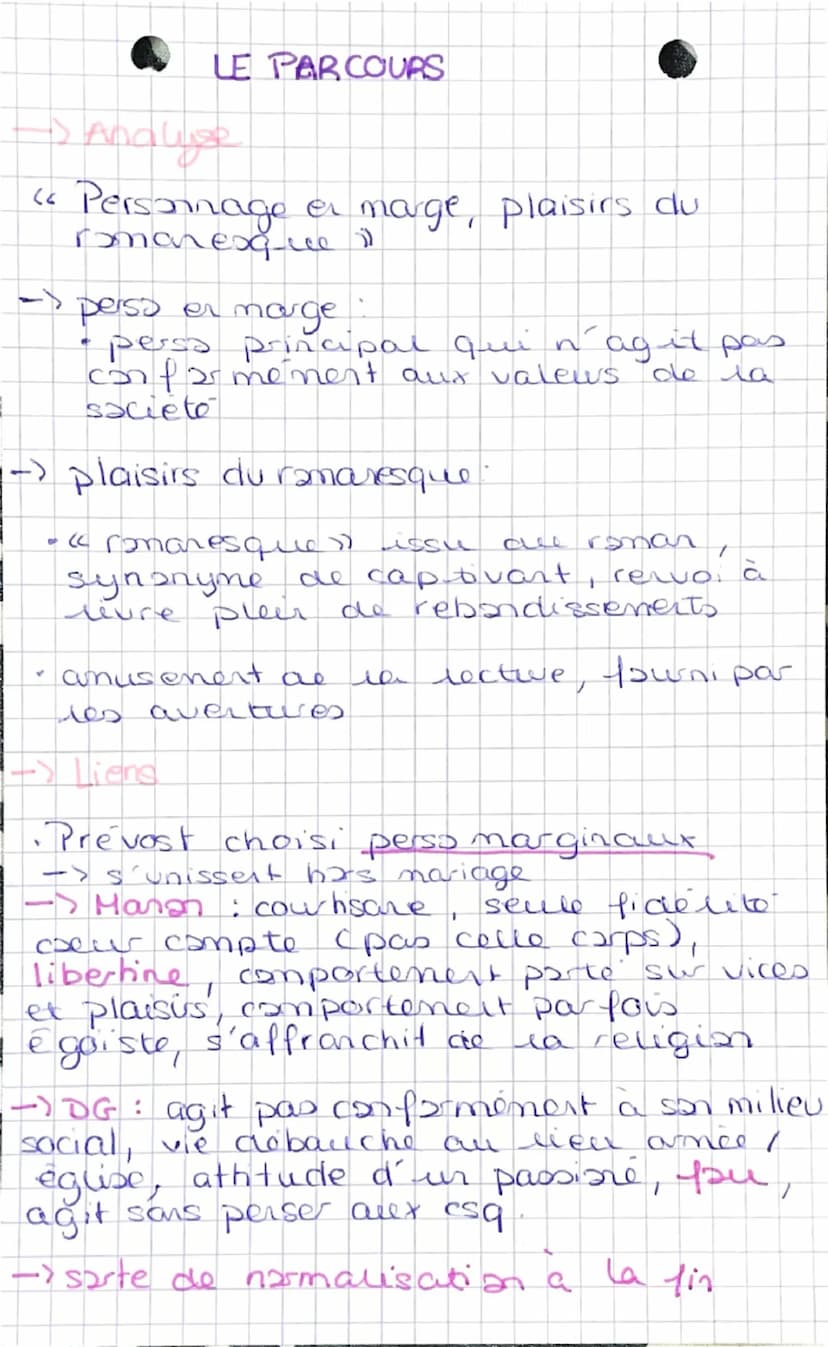 LE PARCOURS
-> Analyse
"Personnage en marge, plaisirs du
romanesque"
-> perso en marge :
• perso principal qui n'agit pas
conformément aux valeurs de la
société
-> plaisirs du romanesque :
• "romanesque" issu du roman,
synonyme de captivant, renvoi à
livre plein de rebondissements
• amusement de la lecture, fourni par
les aventures
-> Liens
• Prévost choisi perso marginaux
-> s'unissent hors mariage
-> Manon : courtisane, seule fidélité
coeur compte (pas celle corps),
libertine, comportement porté sur vices
et plaisirs, comportement parfois
égoïste, s'affranchit de la religion
-> DG : agit pas conformément à son milieu
social, vie débauche au lieu armée /
église, attitude d'un passioné, fou,
agit sans penser aux csq.
-> sorte de normalisation à la fin